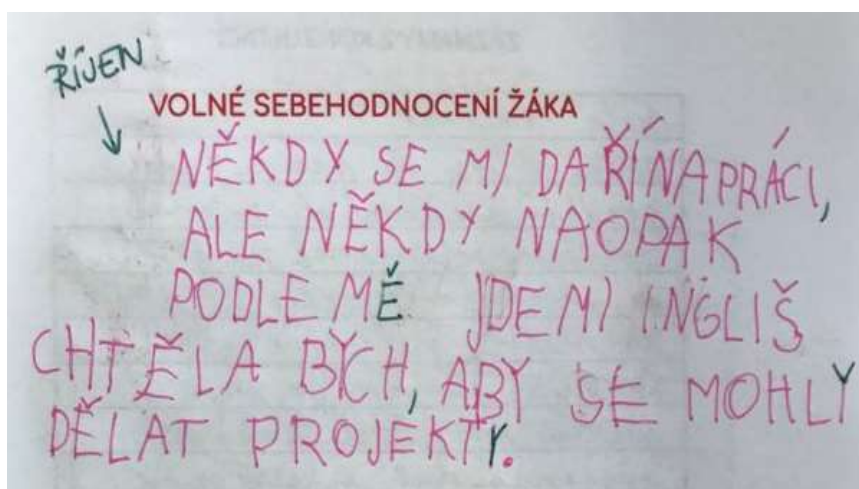 ŘÍJEN
VOLNÉ SEBEHODNOCENÍ ŽÁKA
NĚKDY SE MI DAŘÍ NA PRÁCI,
ALE NĚKDY NAOPAK
PODLE MĚ JDE MI INGLIŠ
CHTĚLA BYCH, ABY SE MOHLY
DĚLAT PROJEKTY.